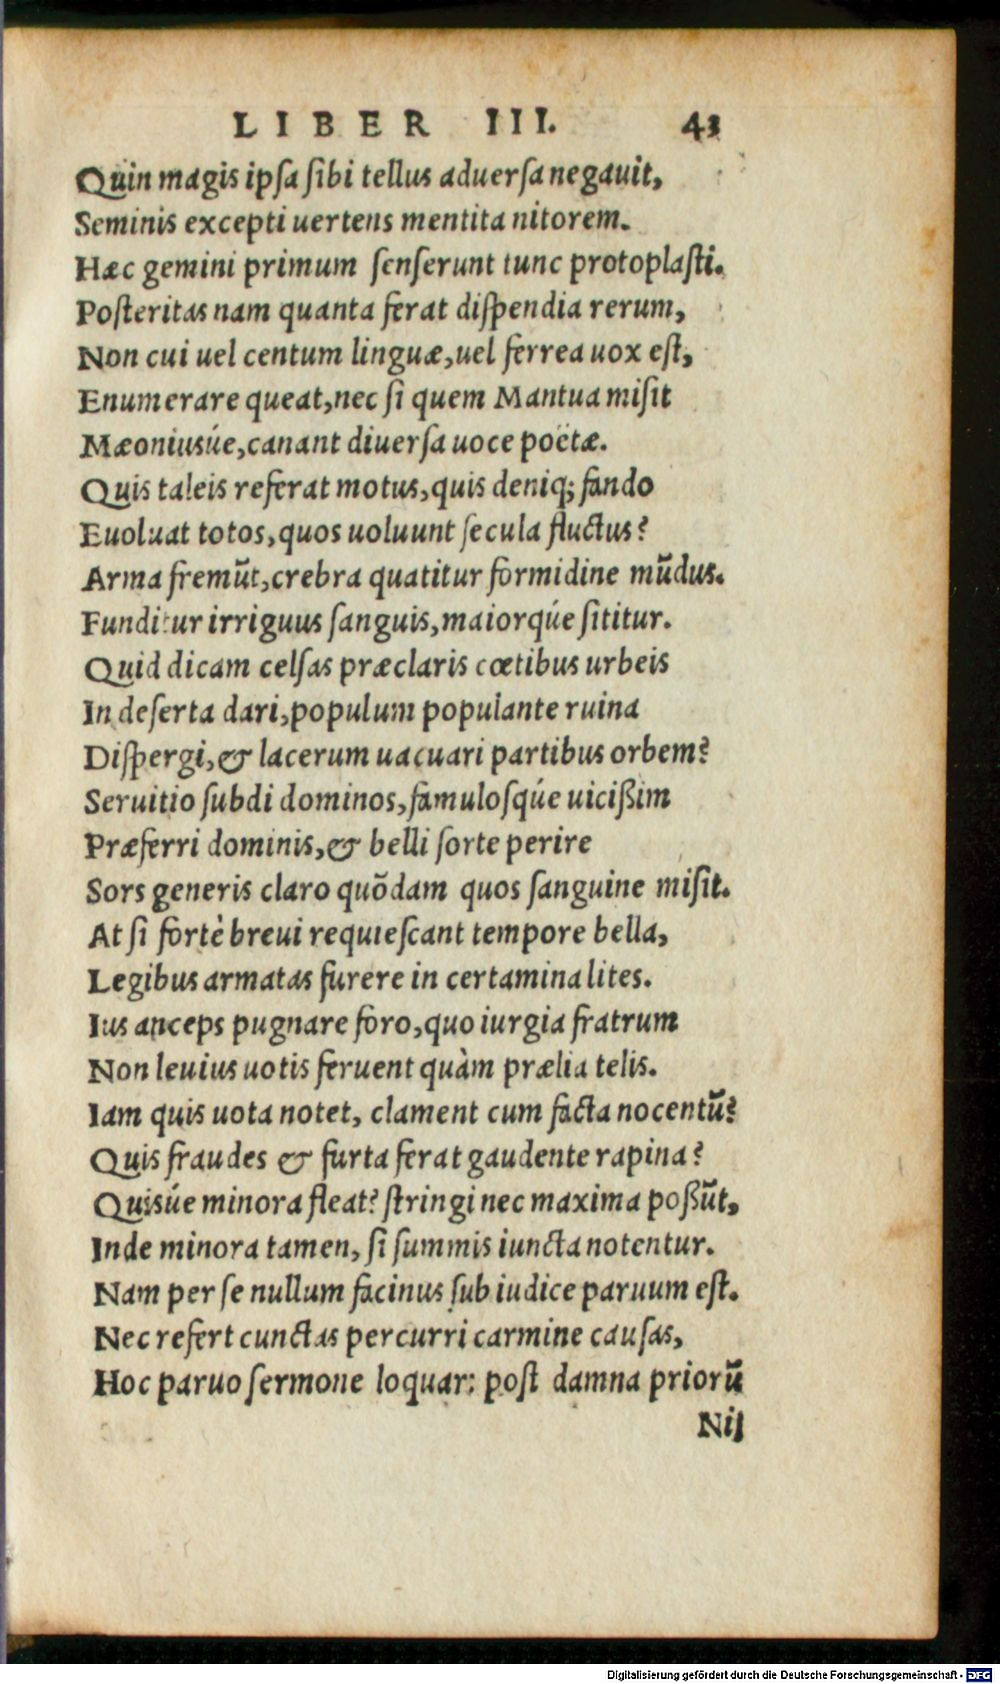 LIBER III. 43
Quin magis ipsa sibi tellus aduersa negauit,
Seminis excepti uertens mentita nitorem.
Hæc gemini primum senserunt tunc protoplasti.
Posteritas nam quanta ferat dispendia rerum,
Non cui uel centum linguæ, uel ferrea uox est,
Enumerare queat, nec si quem Mantua misit
Mæoniusúe, canant diuersa uoce poëtæ.
Quis taleis referat motus, quis deniq; fando
Euoluat totos, quos uoluunt secula fluctus?
Arma fremũt, crebra quatitur formidine mũdus.
Funditur irriguus sanguis, maiorqúe sititur.
Quid dicam celsas præclaris cœtibus urbeis
In deserta dari, populum populante ruina
Dispergi, & lacerum uacuari partibus orbem?
Seruitio subdi dominos, famulosqúe uicißim
Præferri dominis, & belli sorte perire
Sors generis claro quõdam quos sanguine misit.
At si fortè breui requiescant tempore bella,
Legibus armatas furere in certamina lites.
Ius anceps pugnare foro, quo iurgia fratrum
Non leuius uotis feruent quàm prælia telis.
Iam quis uota notet, clament cum facta nocentũ?
Quis fraudes & furta ferat gaudente rapina?
Quisúe minora fleat? stringi nec maxima poßũt,
Inde minora tamen, si summis iuncta notentur.
Nam per se nullum facinus sub iudice paruum est.
Nec refert cunctas percurri carmine causas,
Hoc paruo sermone loquar: post damna priorũ
Nil
Digitalisierung gefördert durch die Deutsche Forschungsgemeinschaft - DFG